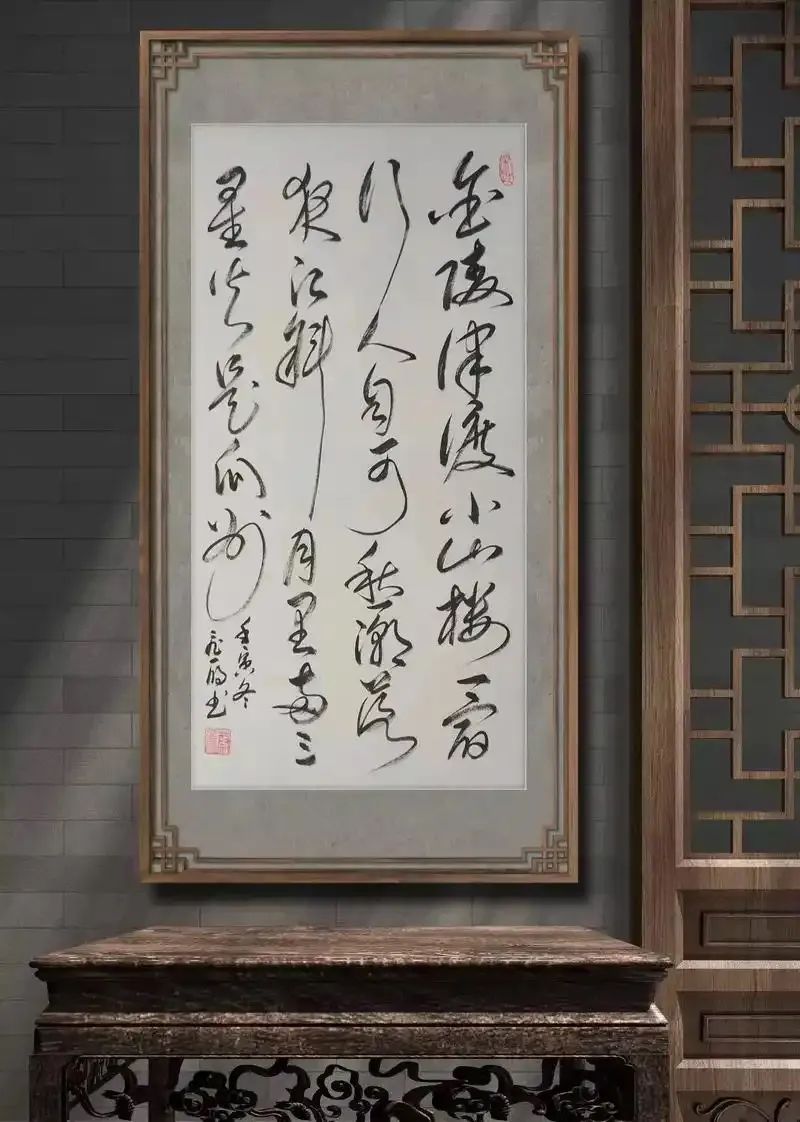 金陵津渡小山楼一宿
行人自可愁潮落
夜江斜月里两三
星火是瓜州
壬寅冬
书